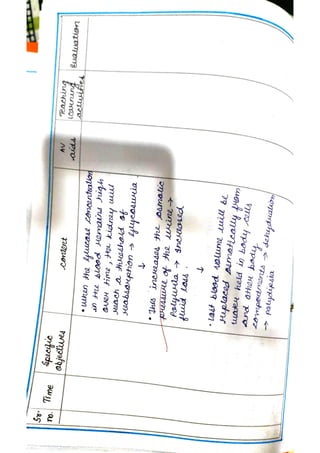 Sr.
no.
Time
Specific
objectives
content
AV
aids
Teaching
learning
activities
Evaluation
• When the glucose concentration
in the blood remains high
over time, the kidney will
reach a threshold of
reabsorption → glycosuria
↓
• This increases the osmotic
pressure of the urine →
Polyuria → Increased
fluid loss.
↓
• Lost blood volume will be
replaced osmotically from
water held in body cells
and other body
compartments → dehydration
→ polydipsia